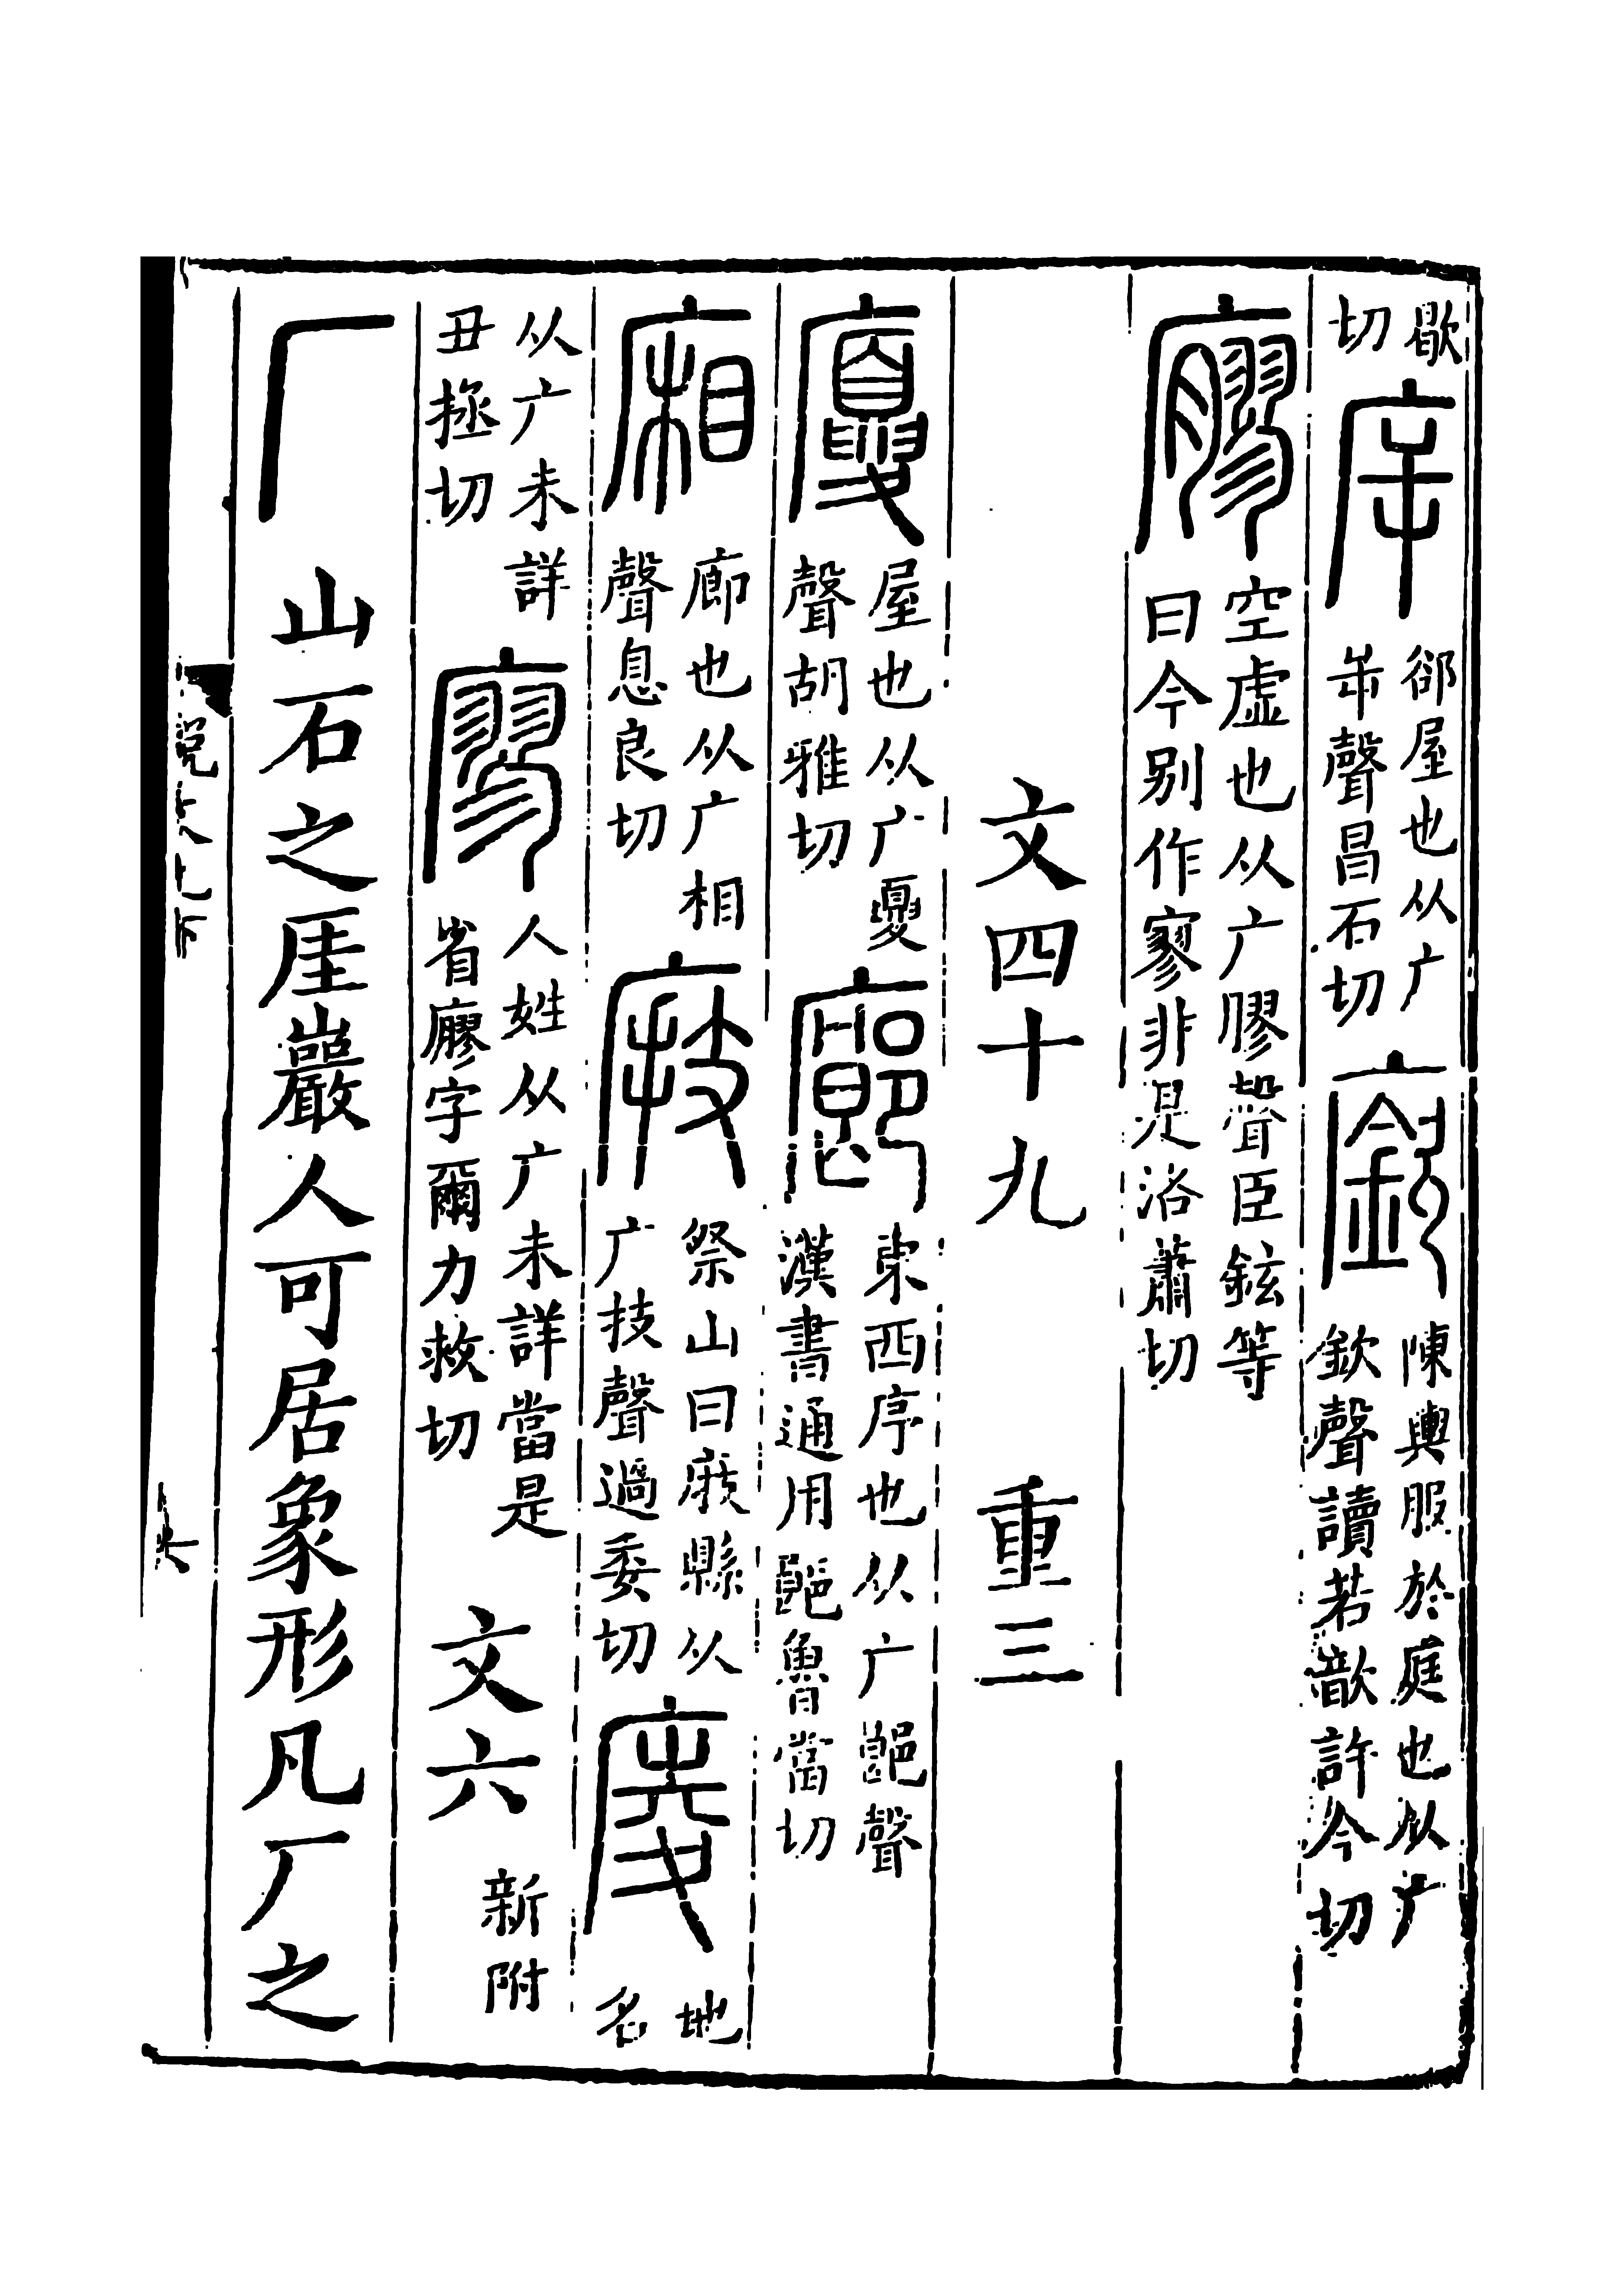 歇切㡿郤屋也从广屰聲昌石切廞陳輿服於庭也从广欽聲讀若歆許今切
廫空虛也从广膠聲臣鉉等曰今别作寥非是洛蕭切
文四十九 重三
廈屋也从广夏聲胡雅切廊東西序也从广郎聲漢書通用郎魯當切
廂廊也从广相聲息良切庪祭山曰庪縣从广技聲過委切庱地名
从广未詳丑拯切廖人姓从广未詳當是省廫字爾力救切 文六 新附
厂山石之厓巖人可居象形凡厂之
說文九下